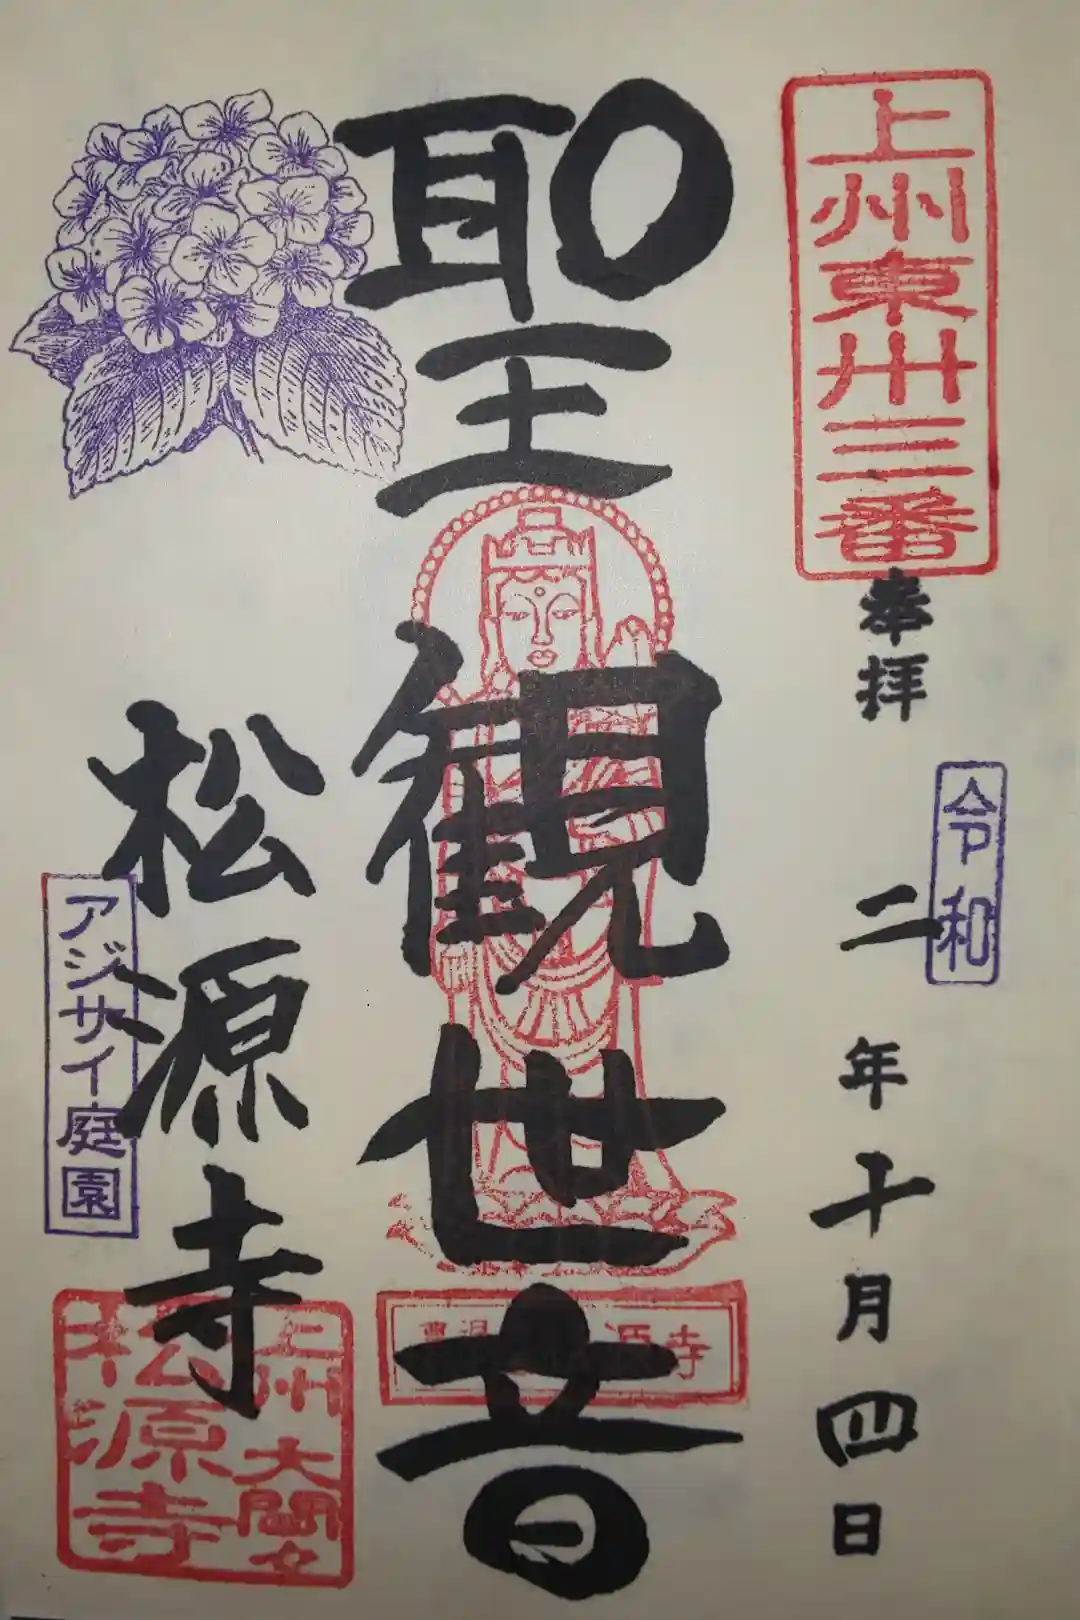 上州東卅三番
奉拝
令和
二年十月四日
聖観世音
松源寺
アジサイ庭園
源寺
上州大間々
松源寺